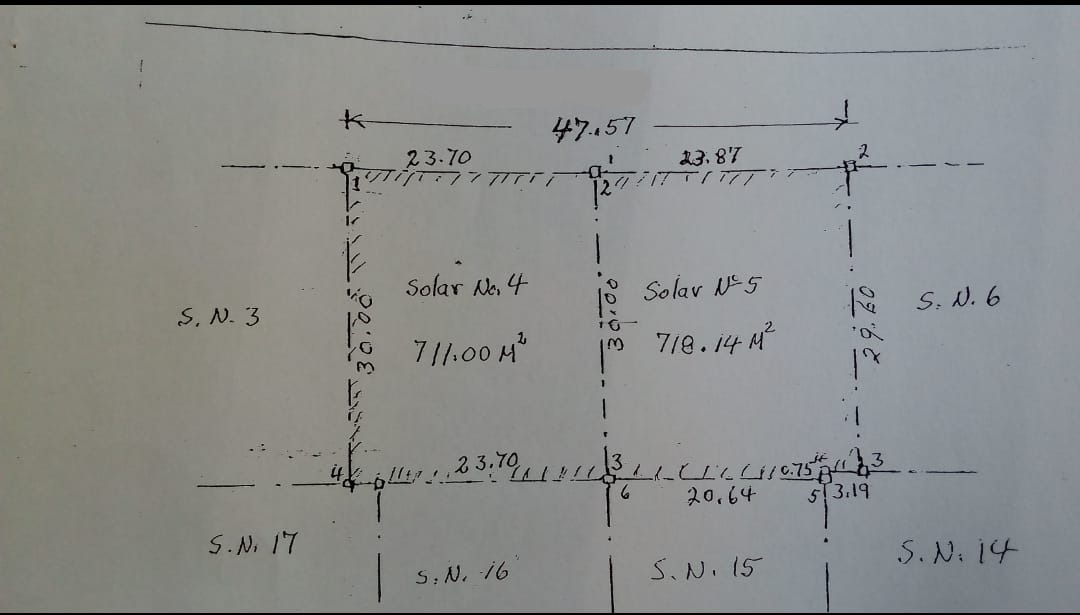 47.57
23.70
23.87
1
2
1
2
Solar No. 4
Solar Nº 5
S. N. 3
S. N. 6
711.00 M²
718.14 M²
30.00
30.00
29.60
4
23.70
3
0.75
3
6
20.64
5
3.19
S. N. 17
S. N. 16
S. N. 15
S. N. 14